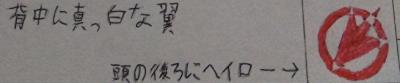 背中に真っ白な翼
頭の後ろにヘイロー→